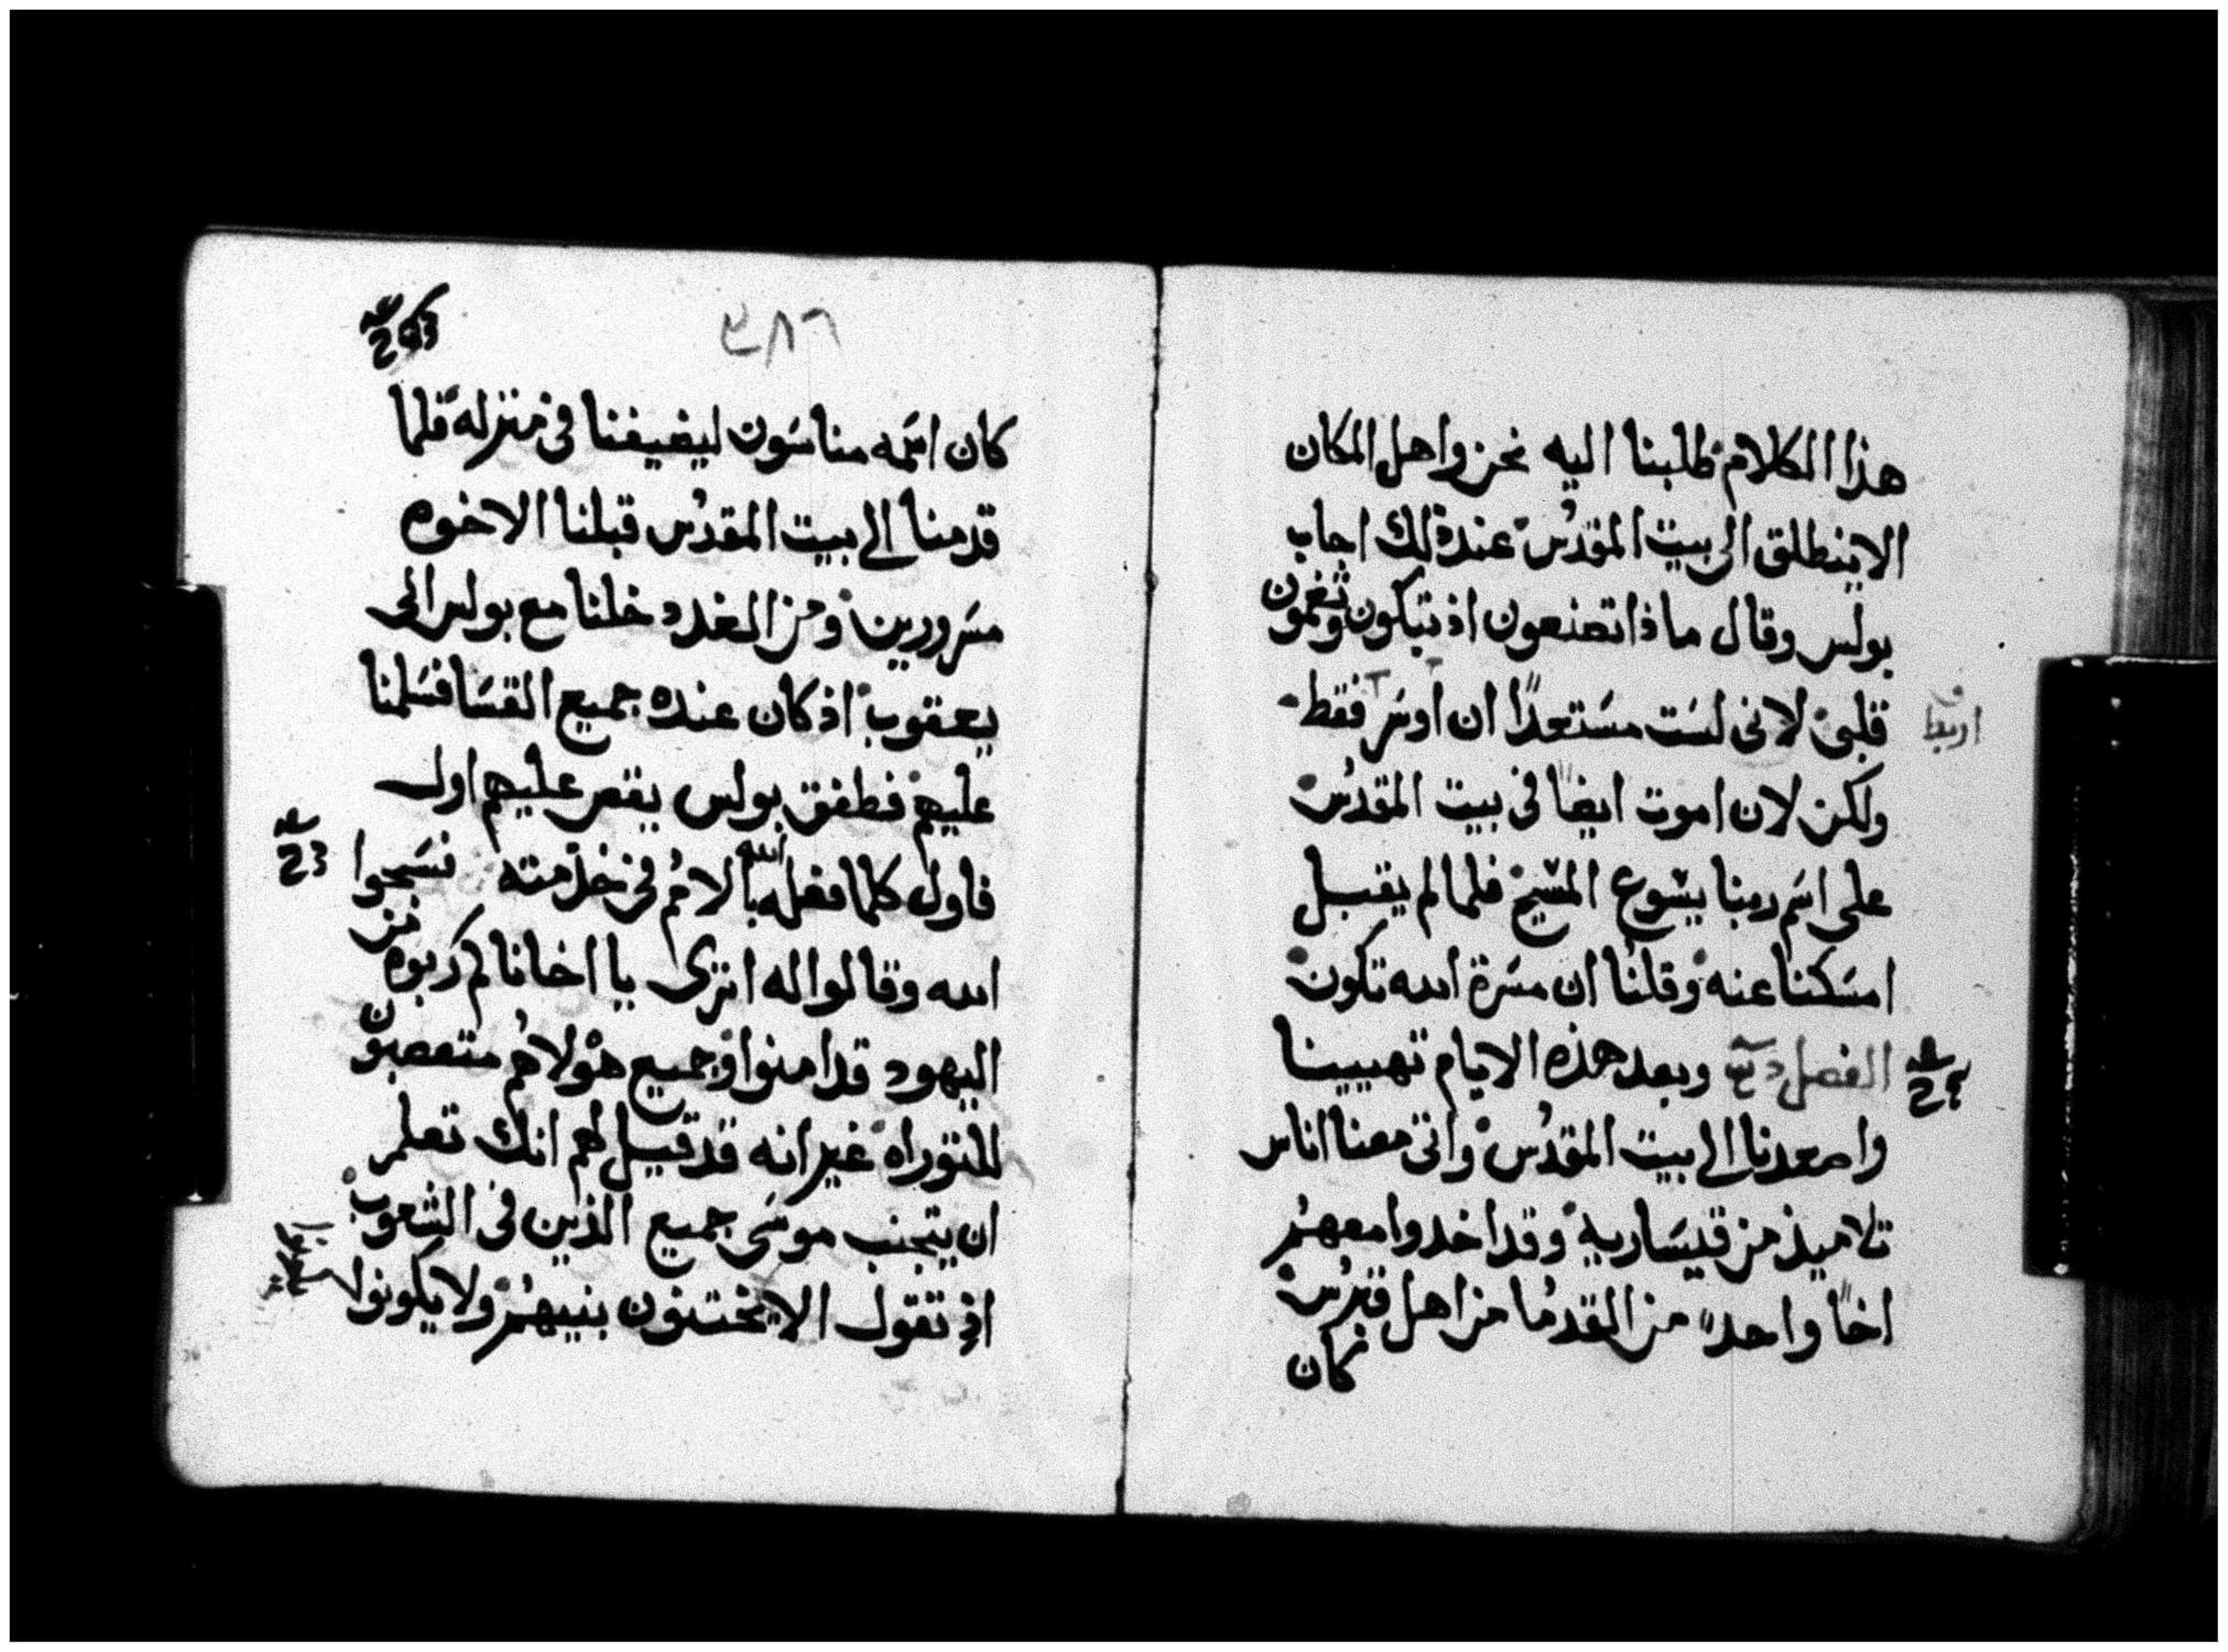 هذا الكلام طلبنا اليه نحن واهل المكان
الا ينطلق الى بيت المقدس عند ذلك اجاب
بولس وقال ماذا تصنعون اذ تبكون وتغمون
قلبي لاني لست مستعدًا ان اوسر فقط
ولكن لان اموت ايضًا في بيت المقدس
على اسم ربنا يشوع المشيح فلما لم يقبل
امسكنا عنه وقلنا ان مسرة الله تكون
الفصل وبعد هذه الايام تهيينا
واصعدنا الى بيت المقدس واتى معنا اناس
تلاميذ من قيسارية وقد اخدوا معهم
اخًا واحدًا من القدما من اهل قبرس
كان
٣٨٦
كان اسمه مناسون ليضيفنا في منزله فلما
قدمنا الى بيت المقدس قبلنا الاخوه
مسرورين ومن الغد دخلنا مع بولس الى
يعقوب اذ كان عنده جميع القسا فسلمنا
عليهم فطفق بولس يقص عليهم اول
فاول كلما فعله الله بالامم في خدمته فسبحوا
الله وقالوا له اترى يا اخانا كم ربوه من
اليهود قد امنوا وجميع هولاهم متعصبون
للتوراه غير انه قد قيل لهم انك تعلم
ان يتجنب موسى جميع الذين في الشعوب
اذ تقول الا يختنون بنيهم ولا يكونوا